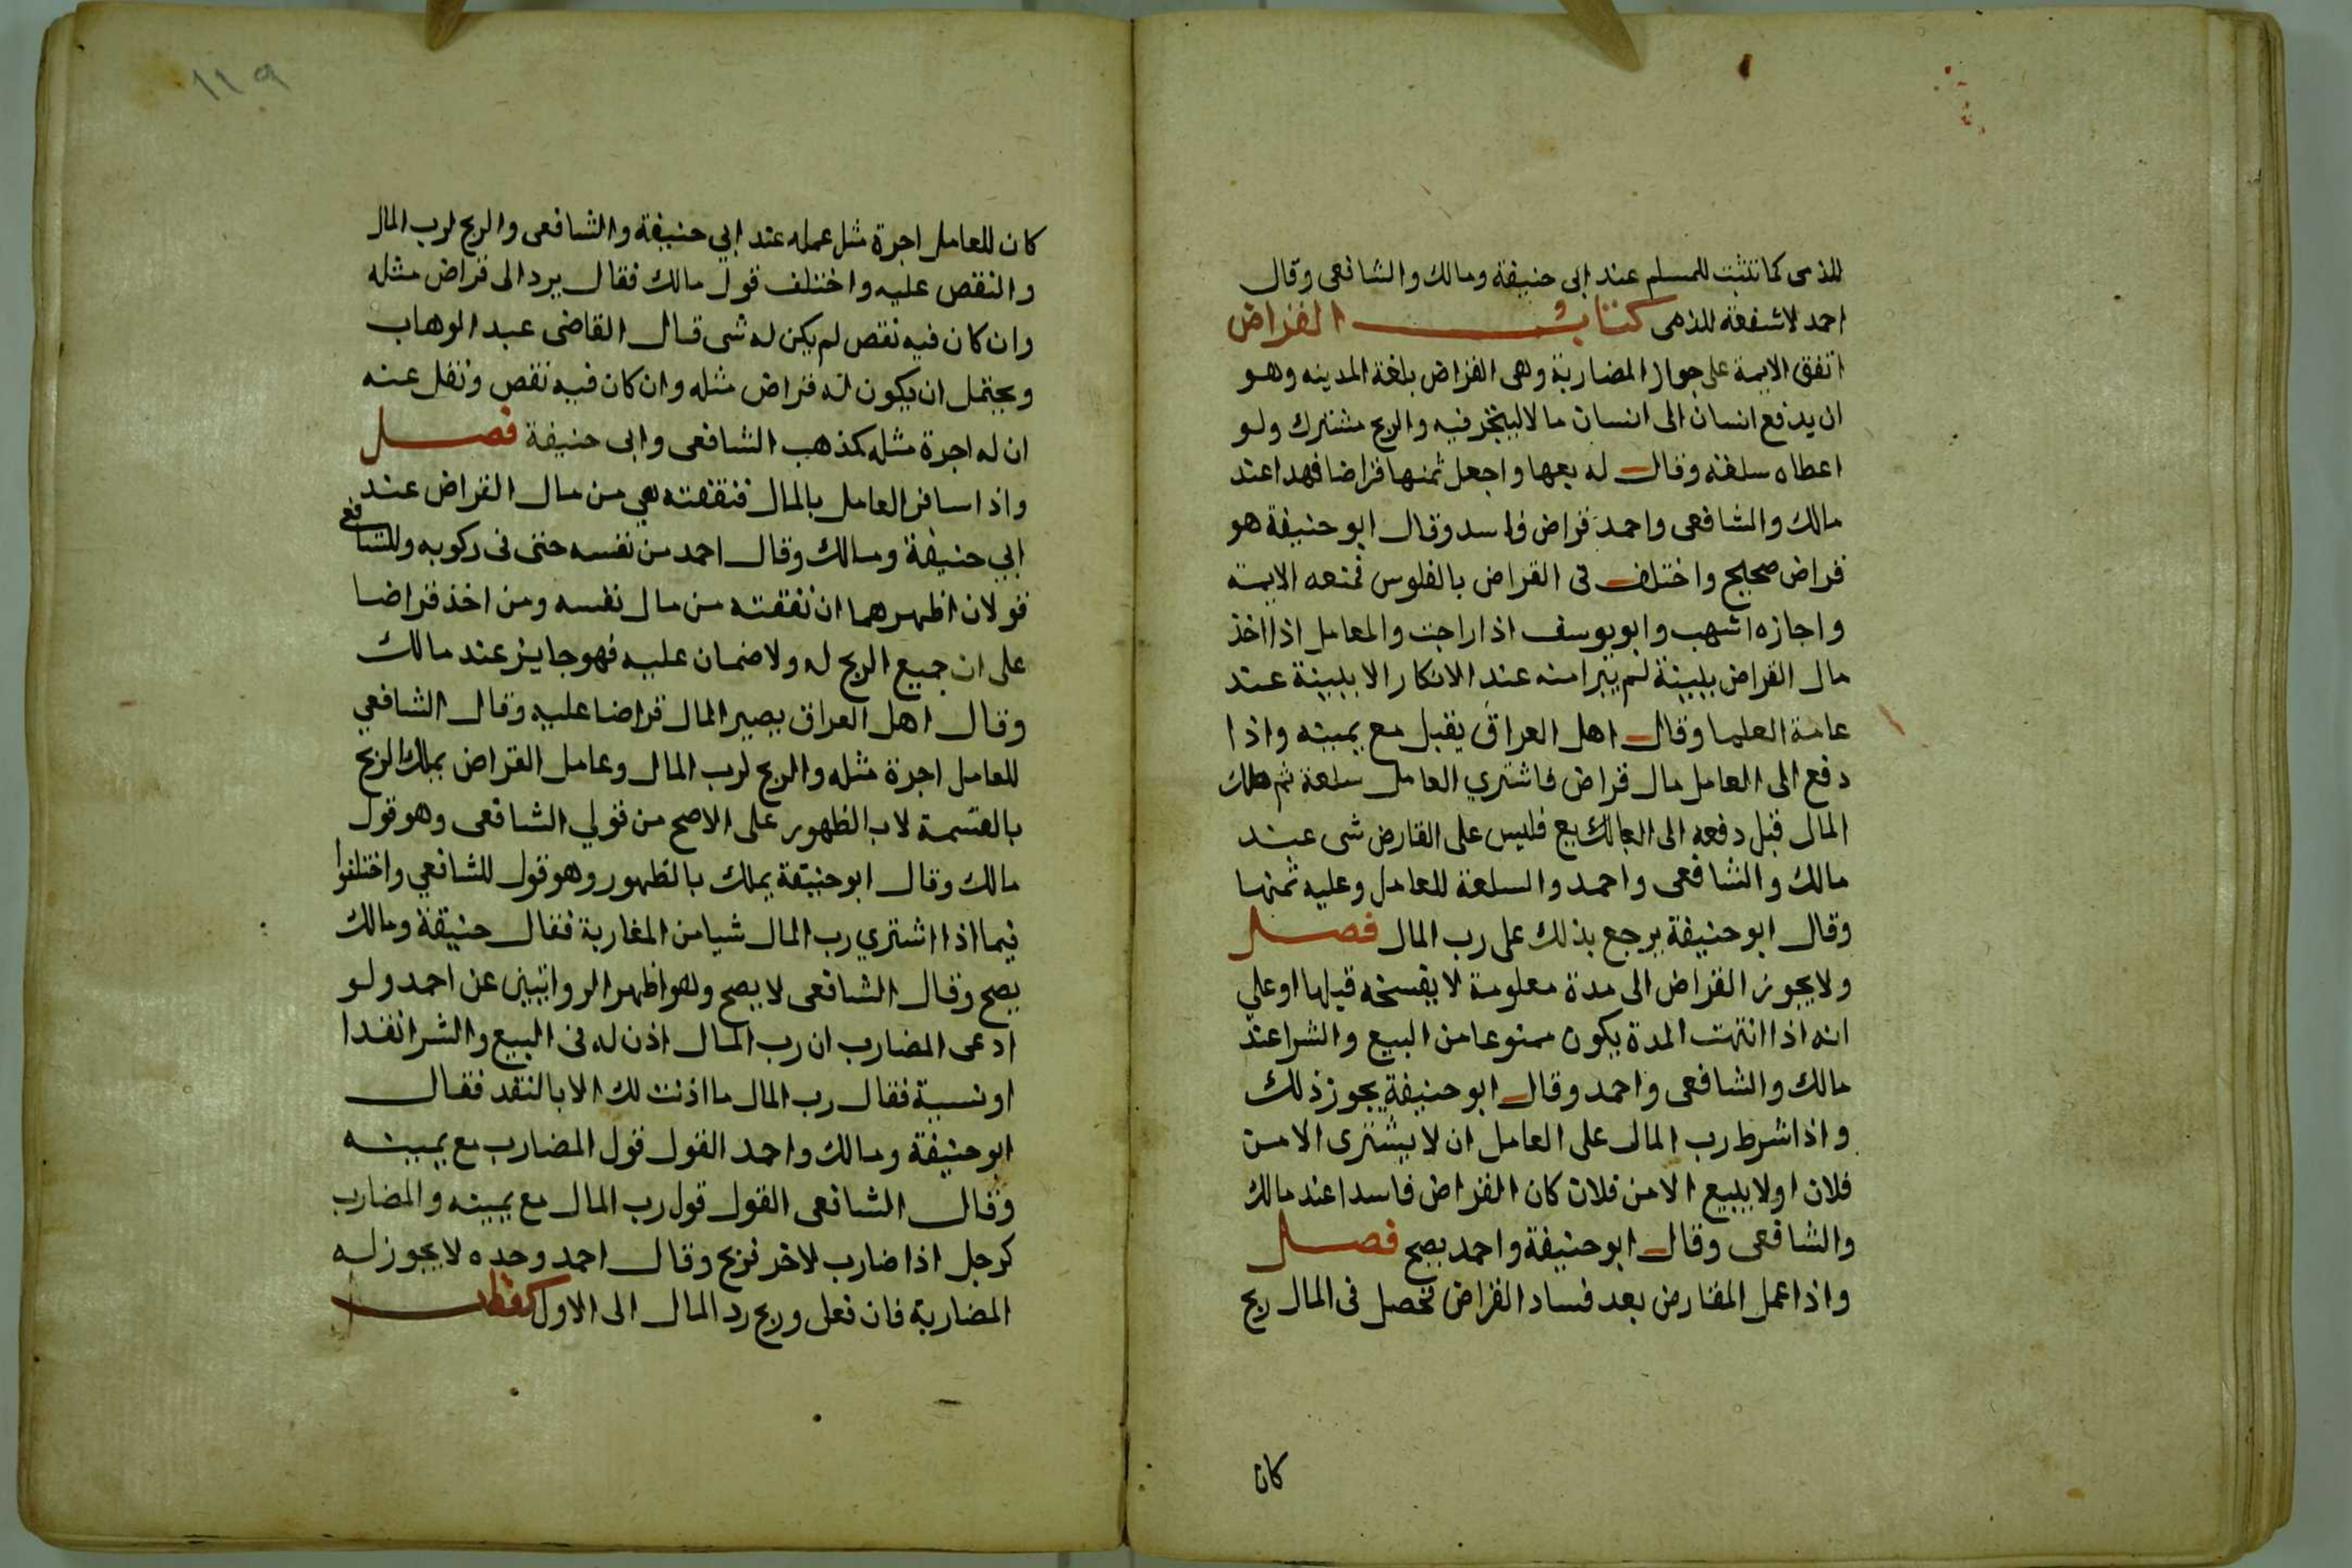 للذمى كما تثبت للمسلم عند ابى حنيفة ومالك والشافعى وقال
احمد لا شفعة للذمى كتاب القراض
اتفق الايمة على جواز المضاربة وهى القراض بلغة المدينه وهو
ان يدفع انسان الى انسان مالا ليتجر فيه والربح مشترك ولو
اعطاه سلعة وقال له بعها واجعل ثمنها قراضا فهدا عند
مالك والشافعى واحمد قراض فاسد وقال ابو حنيفة هو
قراض صحيح واختلف فى القراض بالفلوس فمنعه الايمة
واجازه اشهب وابو يوسف اذا راجت والعامل اذا اخذ
مال القراض ببينة لم يبرا منه عند الانكار الا ببينة عند
عامة العلما وقال اهل العراق يقبل مع يمينه واذا
دفع الى العامل مال قراض فاشتري العامل سلعة ثم هلك
المال قبل دفعه الى البايع فليس على القارض شى عند
مالك والشافعى واحمد والسلعة للعامل وعليه ثمنها
وقال ابو حنيفة يرجع بذلك على رب المال فصل
ولا يجوز القراض الى مدة معلومة لا يفسخه قبلها او على
انه اذا انتهت المدة يكون ممنوعا من البيع والشرا عند
مالك والشافعى واحمد وقال ابو حنيفة يجوز ذلك
واذا شرط رب المال على العامل ان لا يشترى الا من
فلان او لا يبيع الا من فلان كان القراض فاسدا عند مالك
والشافعى وقال ابو حنيفة واحمد يصح فصل
واذا عمل المقارض بعد فساد القراض فحصل فى المال ربح
كان
١١٩
كان للعامل اجرة مثل عمله عند ابي حنيفة والشافعى والربح لرب المال
والنقص عليه واختلف قول مالك فقال يرد الى قراض مثله
وان كان فيه نقص لم يكن له شى قال القاضى عبد الوهاب
ويحتمل ان يكون له قراض مثله وان كان فيه نقص ونقل عنه
ان له اجرة مثله كمذهب الشافعى وابى حنيفة فصل
واذا سافر العامل بالمال فنفقته هي من مال القراض عند
ابي حنيفة ومالك وقال احمد من نفسه حتى فى ركوبه وللشافعى
قولان اظهرهما ان نفقته من مال نفسه ومن اخذ قراضا
على ان جميع الربح له ولا ضمان عليه فهو جايز عند مالك
وقال اهل العراق يصير المال قراضا عليه وقال الشافعي
للعامل اجرة مثله والربح لرب المال وعامل القراض يملك الربح
بالقسمة لا بالظهور على الاصح من قولي الشافعى وهو قول
مالك وقال ابو حنيفة يملك بالظهور وهو قول للشافعي واختلفوا
فيما اذا اشتري رب المال شيا من المغاربة فقال حنيفة ومالك
يصح وقال الشافعى لا يصح وهو اظهر الروايتين عن احمد ولو
ادعى المضارب ان رب المال اذن له فى البيع والشرا نقدا
او نسية فقال رب المال ما اذنت لك الا بالنقد فقال
ابو حنيفة ومالك واحمد القول قول المضارب مع يمينه
وقال الشافعى القول قول رب المال مع يمينه والمضارب
كرجل اذا ضارب لاخر فربح وقال احمد وحده لا يجوز له
المضاربة فان فعل وربح رد المال الى الاول